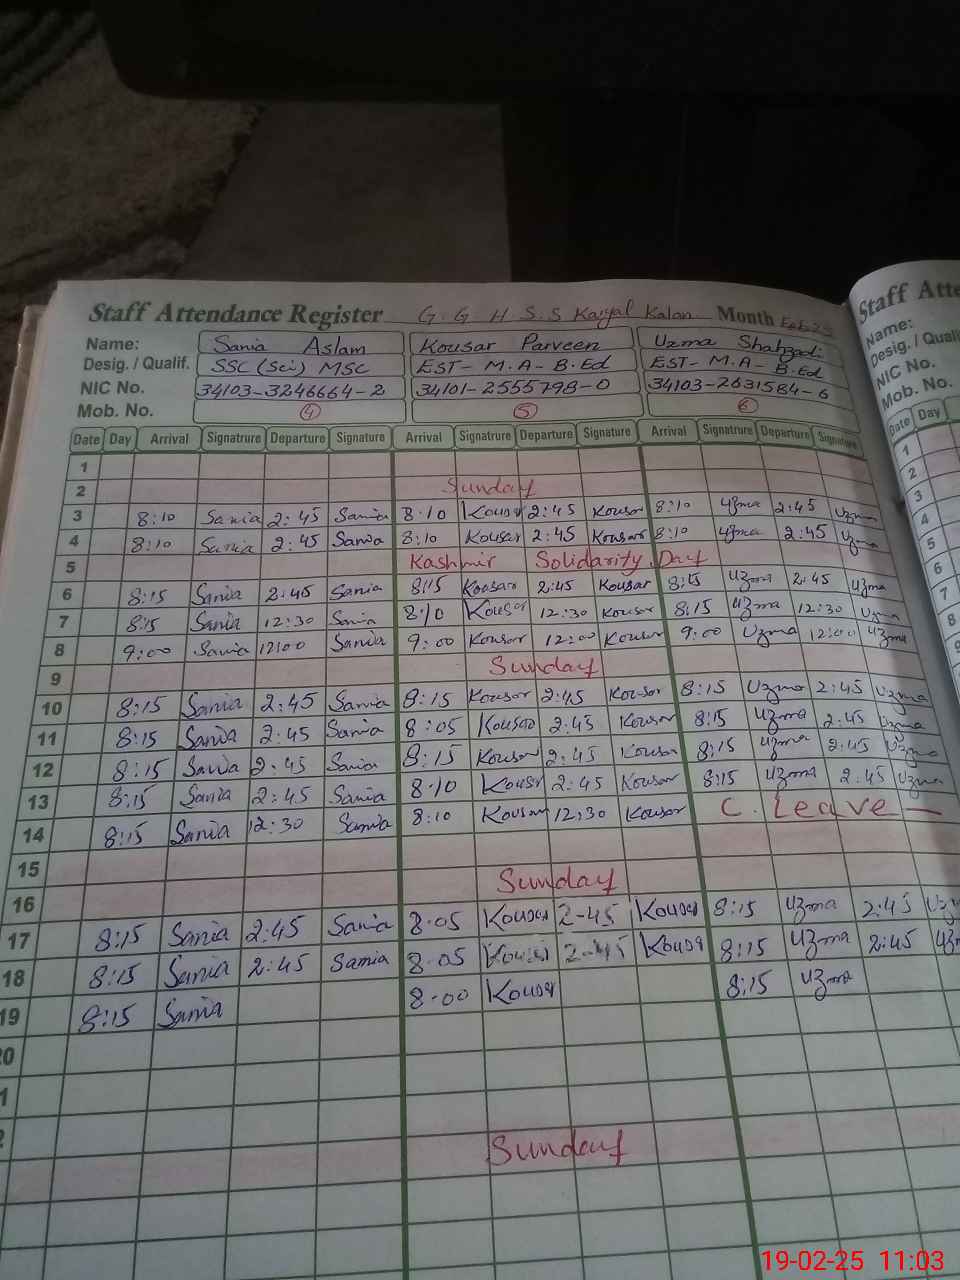 Staff Attendance Register G.G.H.S.S Kaiyal Kalan Month Feb 25
Staff Atte
Name: Sania Aslam Kousar Parveen Uzma Shahzadi
Name:
Desig. / Qualif. SSC (Sci) MSC EST- M.A- B.Ed EST- M.A- B.Ed
Desig. / Qualif.
NIC No. 34103-3246664-2 34101-2555798-0 34103-2631584-6
NIC No.
Mob. No. 4 5 6
Mob. No.
Date Day Arrival Signatrure Departure Signature Arrival Signatrure Departure Signature Arrival Signatrure Departure Signature
Date Day
1
2 Sunday
3 8:10 Sania 2:45 Sania 8:10 Kousar 2:45 Kousar 8:10 Uzma 2:45 Uzma
4 8:10 Sania 2:45 Sania 8:10 Kousar 2:45 Kousar 8:10 Uzma 2:45 Uzma
5 Kashmir Solidarity Day
6 8:15 Sania 2:45 Sania 8:15 Kousar 2:45 Kousar 8:15 Uzma 2:45 Uzma
7 8:15 Sania 12:30 Sania 8:10 Kousar 12:30 Kousar 8:15 Uzma 12:30 Uzma
8 9:00 Sania 12:00 Sania 9:00 Kousar 12:00 Kousar 9:00 Uzma 12:00 Uzma
9 Sunday
10 8:15 Sania 2:45 Sania 8:15 Kousar 2:45 Kousar 8:15 Uzma 2:45 Uzma
11 8:15 Sania 2:45 Sania 8:05 Kousar 2:45 Kousar 8:15 Uzma 2:45 Uzma
12 8:15 Sania 2:45 Sania 8:15 Kousar 2:45 Kousar 8:15 Uzma 2:45 Uzma
13 8:15 Sania 2:45 Sania 8:10 Kousar 2:45 Kousar 8:15 Uzma 2:45 Uzma
14 8:15 Sania 12:30 Sania 8:10 Kousar 12:30 Kousar C. Leave —
15
16 Sunday
17 8:15 Sania 2:45 Sania 8.05 Kousar 2-45 Kousar 8:15 Uzma 2:45 Uz
18 8:15 Sania 2:45 Sania 8.05 Kousar 2-45 Kousar 8:15 Uzma 2:45 Uz
19 8:15 Sania 8.00 Kousar 8:15 Uzma
20
1
2
Sunday
1
2
3
4
5
6
7
8
19-02-25 11:03